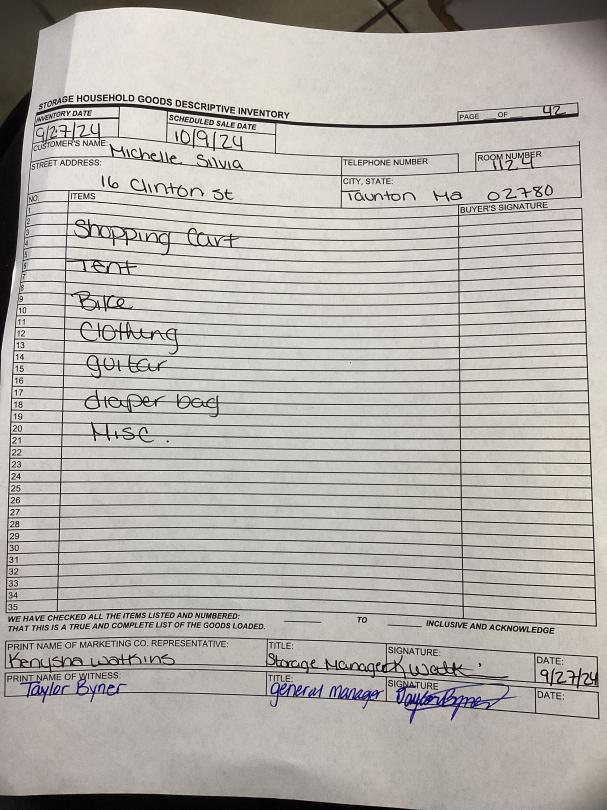 STORAGE HOUSEHOLD GOODS DESCRIPTIVE INVENTORY
PAGE OF 42
INVENTORY DATE
9/27/24
SCHEDULED SALE DATE
10/9/24
CUSTOMER'S NAME: Michelle Silvia
TELEPHONE NUMBER
ROOM NUMBER
1124
STREET ADDRESS:
16 Clinton St
CITY, STATE:
Taunton Ma 02780
NO. ITEMS BUYER'S SIGNATURE
1
2
3 Shopping Cart
4
5
6 Tent
7
8
9 Bike
10
11
12 Clothing
13
14
15 guitar
16
17
18 diaper bag
19
20 Misc.
21
22
23
24
25
26
27
28
29
30
31
32
33
34
35
WE HAVE CHECKED ALL THE ITEMS LISTED AND NUMBERED: TO INCLUSIVE AND ACKNOWLEDGE
THAT THIS IS A TRUE AND COMPLETE LIST OF THE GOODS LOADED.
PRINT NAME OF MARKETING CO. REPRESENTATIVE: TITLE: SIGNATURE: DATE:
Kenysha Watkins Storage Manager K Watk 9/27/24
PRINT NAME OF WITNESS: TITLE: SIGNATURE DATE:
Taylor Byner general manager Taylor Byner